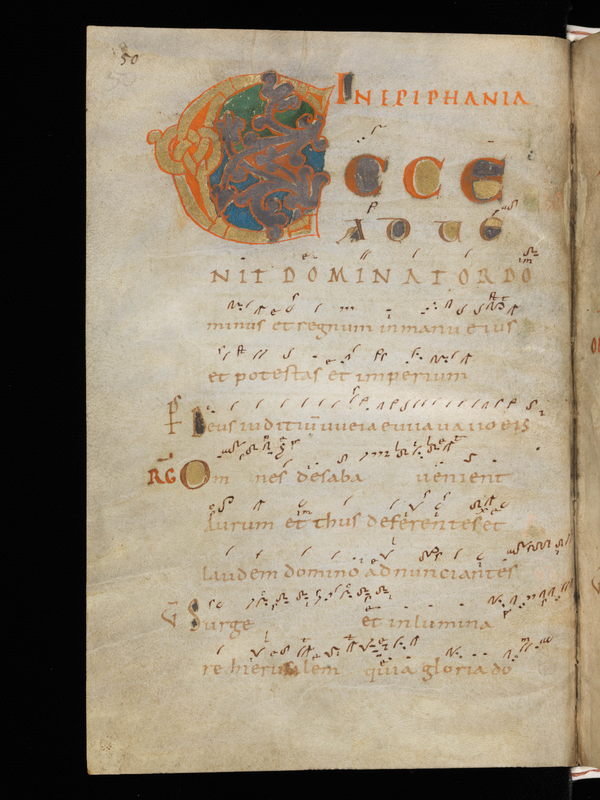 50
IN EPIPHANIA
ECCE
ADUE
NIT DOMINATOR DO
minus et regnum in manu eius
et potestas et imperium
Deus iudiciū
RG Omnes desaba uenient
Aurum et thus deferentes et
laudem domino adnunciantes
V Surge et inlumina
re hierusalem quia gloria do